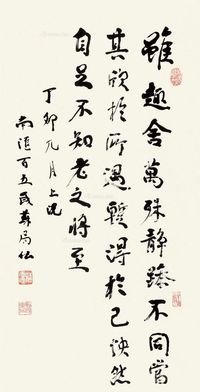 雖趣舍萬殊靜躁不同當
其欣於所遇輒得於己怏然
自足不知老之將至
丁卯九月上浣
南滙百五歲蘇局仙